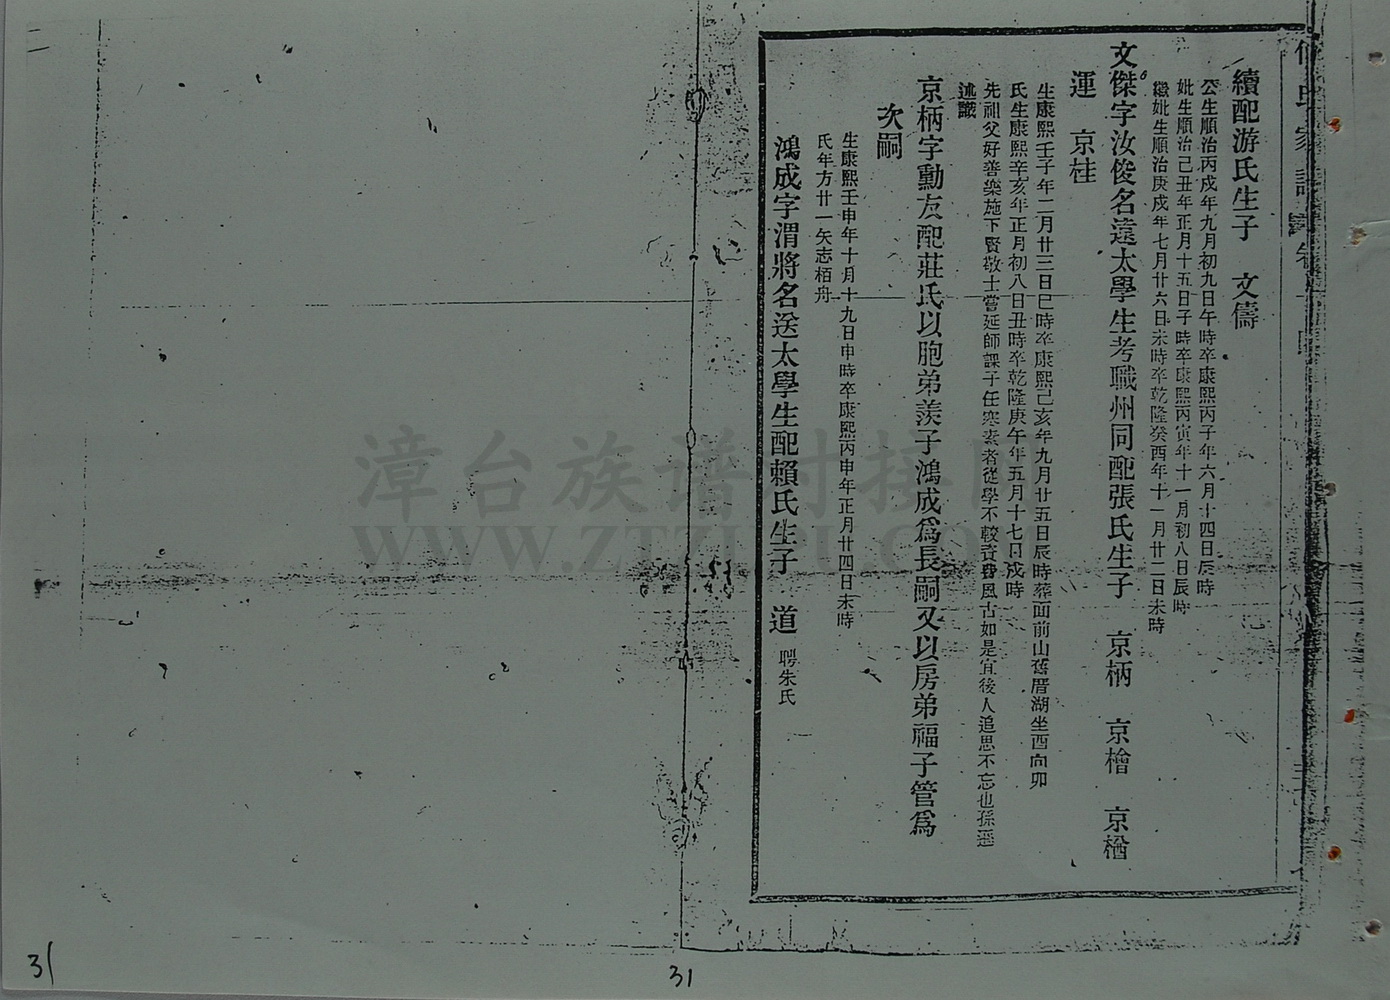 氏家譜
續配游氏生子 文儔
公生順治丙戌年九月初九日午時卒康熙丙子年六月十四日辰時
妣生順治己丑年正月十五日子時卒康熙丙寅年十一月初八日辰時
繼妣生順治庚戌年七月廿六日未時卒乾隆癸酉年十一月廿二日未時
文傑字汝俊名遠太學生考職州同配張氏生子 京柄 京檜 京楢
運 京桂
生康熙壬子年二月廿三日巳時卒康熙己亥年九月廿五日辰時葬面前山舊厝湖坐酉向卯
氏生康熙辛亥年正月初八日丑時卒乾隆庚午年五月十七日戌時
先祖父好善樂施下賢敬士嘗延師課子任寒素者從學不較資發風古如是宜後人追思不忘也孫遜
述識
京柄字勳友配莊氏以胞弟羨子鴻成爲長嗣又以房弟福子管爲
次嗣
生康熙壬申年十月十九日申時卒康熙丙申年正月廿四日未時
氏年方廿一矢志栢舟
鴻成字渭將名送太學生配賴氏生子 道 聘朱氏
漳台族谱对接网
WWW.ZTZUPU.COM
31
31